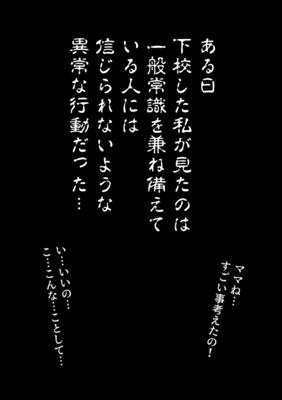 ある日
下校した私が見たのは
一般常識を兼ね備えて
いる人には
信じられないような
異常な行動だった…
ママね…
すごい事考えたの!
い…いいの…
こ…こんな…ことして…